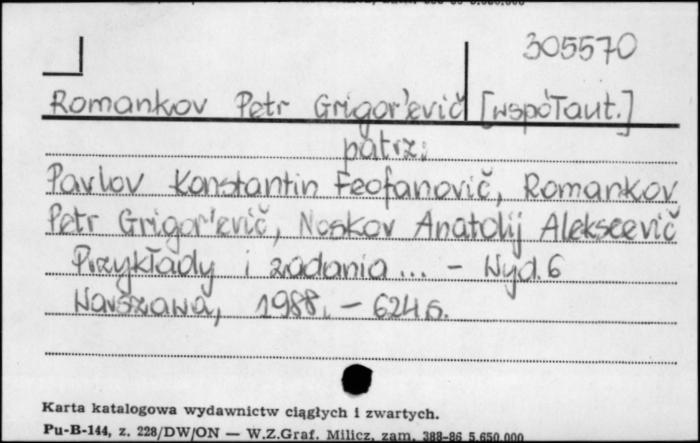 305570
Romankov Petr Grigor'evič [współaut.]
patrz:
Pavlov Konstantin Feofanovič, Romankov
Petr Grigor'evič, Noskov Anatolij Alekseevič
Przykłady i zadania... - Wyd. 6
Warszawa, 1988. - 624 s.
Karta katalogowa wydawnictw ciągłych i zwartych.
Pu-B-144, z. 228/DW/ON — W.Z.Graf. Milicz, zam. 388-86 5.650.000